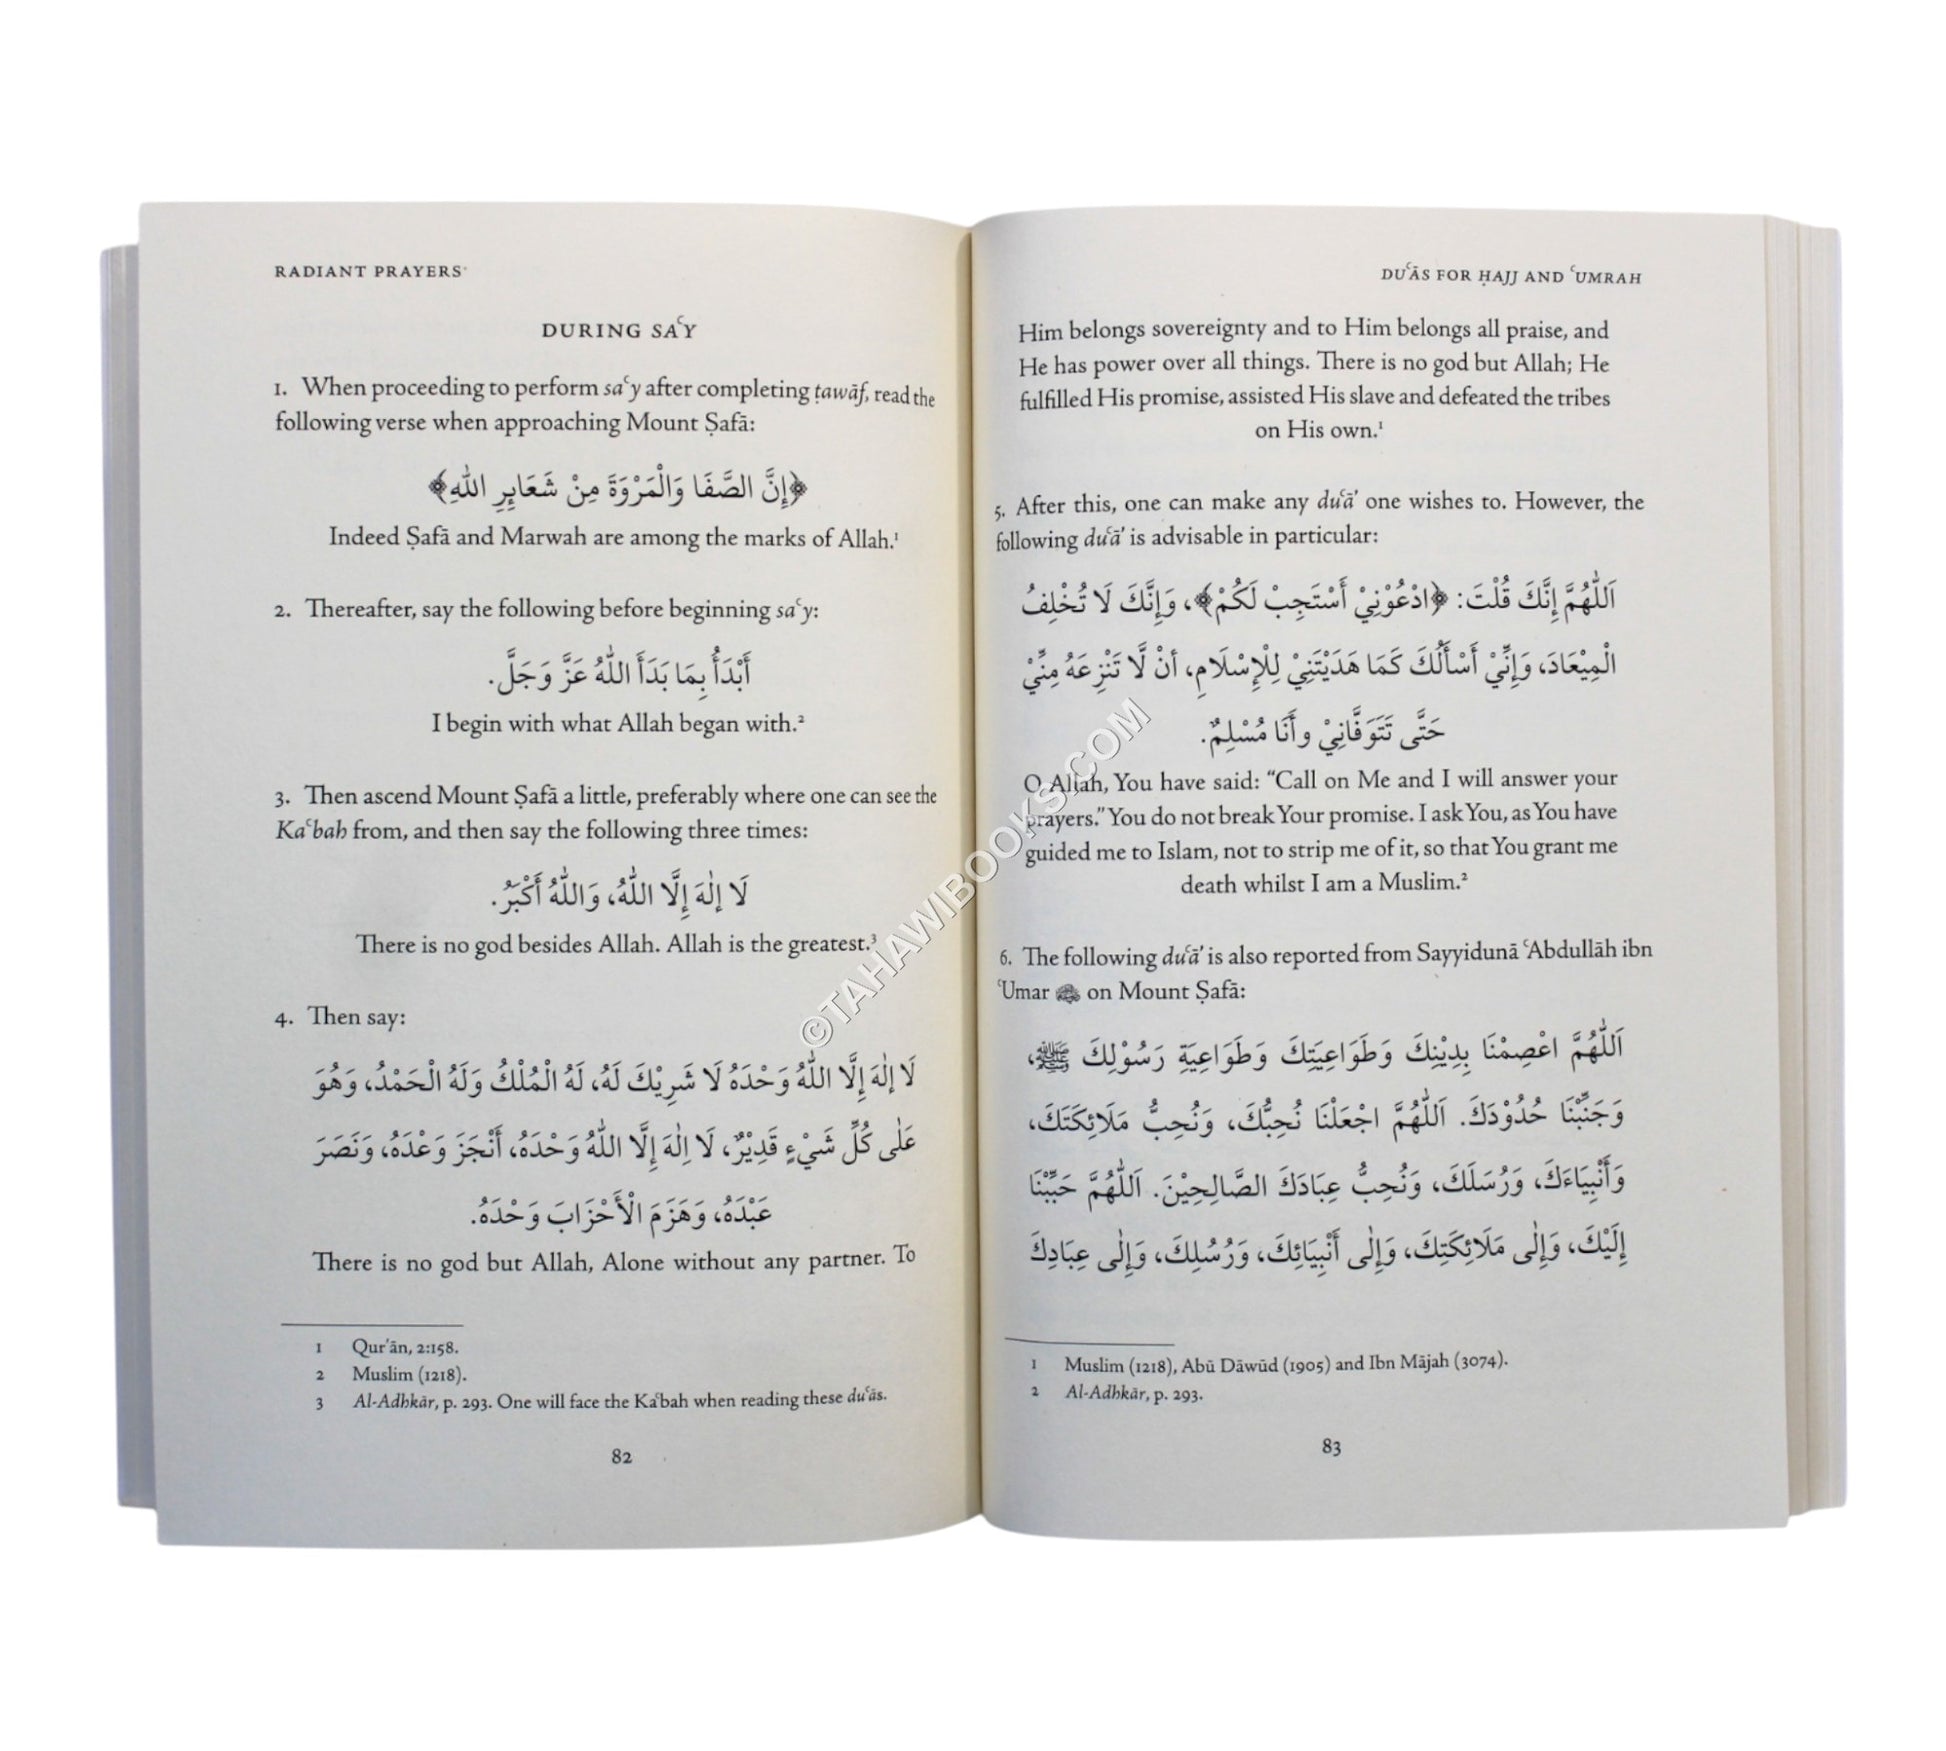 RADIANT PRAYERS
DURING SAʿY
1. When proceeding to perform saʿy after completing ṭawāf, read the
following verse when approaching Mount Ṣafā:
﴿إِنَّ الصَّفَا وَالْمَرْوَةَ مِنْ شَعَايِرِ اللّٰهِ﴾
Indeed Ṣafā and Marwah are among the marks of Allah.¹
2. Thereafter, say the following before beginning saʿy:
أَبْدَأُ بِمَا بَدَأَ اللّٰهُ عَزَّ وَجَلَّ.
I begin with what Allah began with.²
3. Then ascend Mount Ṣafā a little, preferably where one can see the
Kaʿbah from, and then say the following three times:
لَا إِلٰهَ إِلَّا اللّٰهُ، وَاللّٰهُ أَكْبَرُ.
There is no god besides Allah. Allah is the greatest.³
4. Then say:
لَا إِلٰهَ إِلَّا اللّٰهُ وَحْدَهُ لَا شَرِيْكَ لَهُ، لَهُ الْمُلْكُ وَلَهُ الْحَمْدُ، وَهُوَ
عَلٰى كُلِّ شَيْءٍ قَدِيْرٌ، لَا إِلٰهَ إِلَّا اللّٰهُ وَحْدَهُ، أَنْجَزَ وَعْدَهُ، وَنَصَرَ
عَبْدَهُ، وَهَزَمَ الْأَحْزَابَ وَحْدَهُ.
There is no god but Allah, Alone without any partner. To
1 Qur’ān, 2:158.
2 Muslim (1218).
3 Al-Adhkār, p. 293. One will face the Kaʿbah when reading these duʿās.
82
DUʿĀS FOR ḤAJJ AND ʿUMRAH
Him belongs sovereignty and to Him belongs all praise, and
He has power over all things. There is no god but Allah; He
fulfilled His promise, assisted His slave and defeated the tribes
on His own.¹
5. After this, one can make any duʿā’ one wishes to. However, the
following duʿā’ is advisable in particular:
اَللّٰهُمَّ إِنَّكَ قُلْتَ: ﴿ادْعُوْنِيْ أَسْتَجِبْ لَكُمْ﴾، وَإِنَّكَ لَا تُخْلِفُ
الْمِيْعَادَ، وَإِنِّيْ أَسْأَلُكَ كَمَا هَدَيْتَنِيْ لِلْإِسْلَامِ، أنْ لَّا تَنْزِعَهُ مِنِّيْ
حَتَّى تَتَوَفَّانِيْ وأَنَا مُسْلِمٌ.
O Allah, You have said: “Call on Me and I will answer your
prayers.” You do not break Your promise. I ask You, as You have
guided me to Islam, not to strip me of it, so that You grant me
death whilst I am a Muslim.²
6. The following duʿā’ is also reported from Sayyidunā ʿAbdullāh ibn
ʿUmar on Mount Ṣafā:
اَللّٰهُمَّ اعْصِمْنَا بِدِيْنِكَ وَطَوَاعِيَتِكَ وَطَوَاعِيَةِ رَسُوْلِكَ ﷺ،
وَجَنِّبْنَا حُدُوْدَكَ. اَللّٰهُمَّ اجْعَلْنَا نُحِبُّكَ، وَنُحِبُّ مَلَائِكَتَكَ،
وَأَنْبِيَاءَكَ، وَرُسَلَكَ، وَنُحِبُّ عِبَادَكَ الصَّالِحِيْنَ. اَللّٰهُمَّ حَبِّبْنَا
إِلَيْكَ، وَإِلٰى مَلَائِكَتِكَ، وَإِلٰى أَنْبِيَائِكَ، وَرُسُلِكَ، وَإِلٰى عِبَادِكَ
1 Muslim (1218), Abū Dāwūd (1905) and Ibn Mājah (3074).
2 Al-Adhkār, p. 293.
83
©TAHAWIBOOKS.COM